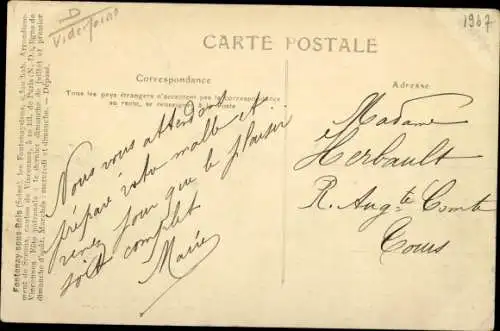 1907
CARTE POSTALE
Correspondance
Tous les pays étrangers n'acceptent pas la correspondance
au recto, se renseigner à la Poste
Adresse
Nous vous attendons
préparé votre malle et
venez pour que le plaisir
soit complet
Marie
Madame
Herbault
R. Augte Comte
Tours
Fontenay-sous-Bois (Seine). Les Fontenaysiens, 9.320 hab. Arrondisse-
ment de Sceaux, canton de Vincennes, à 10 kil. de Paris (N.-D.), ligne de
Vincennes. Fête patronale : le dernier dimanche de juillet et premier
dimanche d'août. Marchés : mercredi et dimanche. — Dépend.